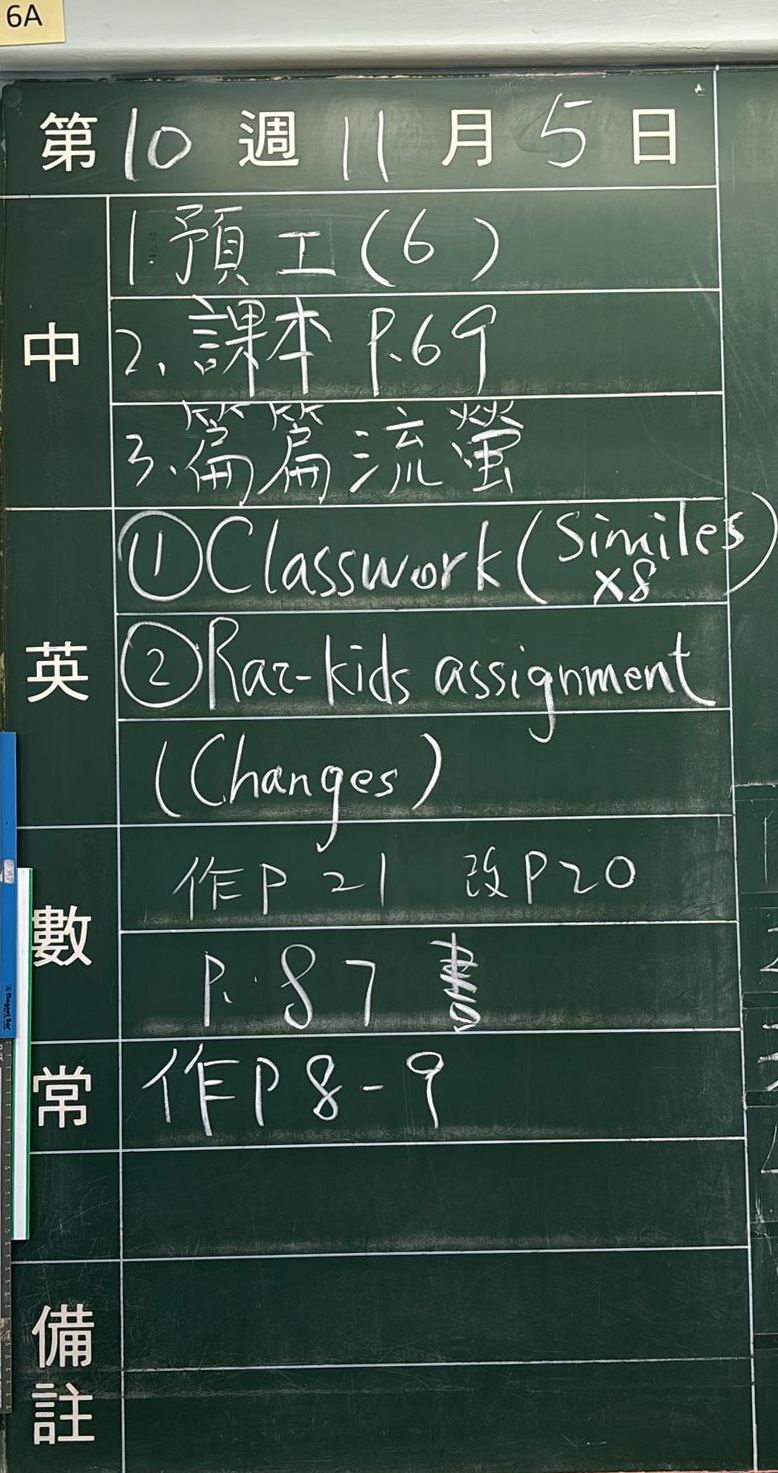 6A
第10週11月5日
中
1.預工(6)
2.課本 P.69
3.篇篇流螢
英
①Classwork(Similes
×8)
②Raz-kids assignment
(Changes)
數
作P 21 改P20
P.87
常
作P8-9
備
註